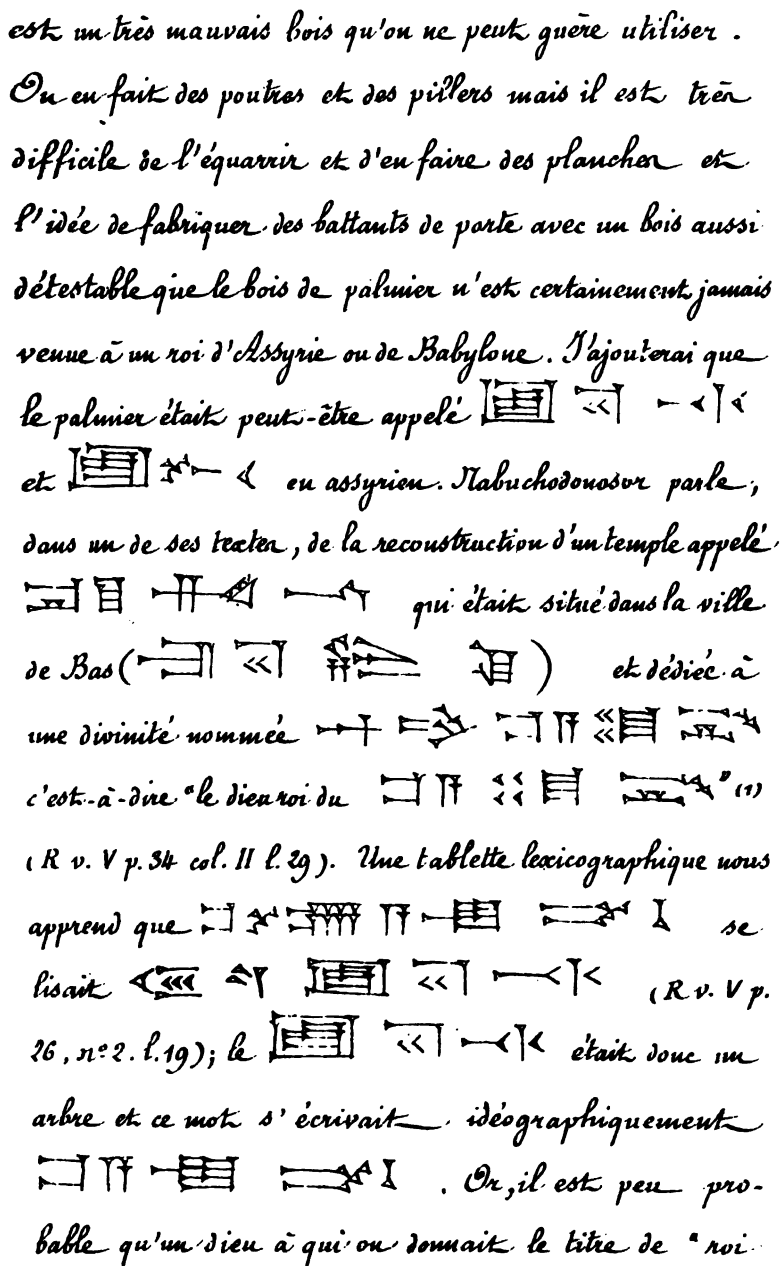 est un très mauvais bois qu'on ne peut guère utiliser.
On en fait des poutres et des piliers mais il est très
difficile de l'équarrir et d'en faire des planches et
l'idée de fabriquer des battants de porte avec un bois aussi
détestable que le bois de palmier n'est certainement jamais
venue à un roi d'Assyrie ou de Babylone. J'ajouterai que
le palmier était peut-être appelé
et en assyrien. Nabuchodonosor parle,
dans un de ses textes, de la reconstruction d'un temple appelé
qui était situé dans la ville
de Bas ( ) et dédiée à
une divinité nommée
c'est-à-dire "le dieu roi du " (1)
(R v. V p. 34 col. II l. 29). Une tablette lexicographique nous
apprend que se
lisait (R v. V p.
26, n° 2. l. 19); le était donc un
arbre et ce mot s'écrivait idéographiquement
. Or, il est peu pro-
bable qu'un dieu à qui on donnait le titre de "roi